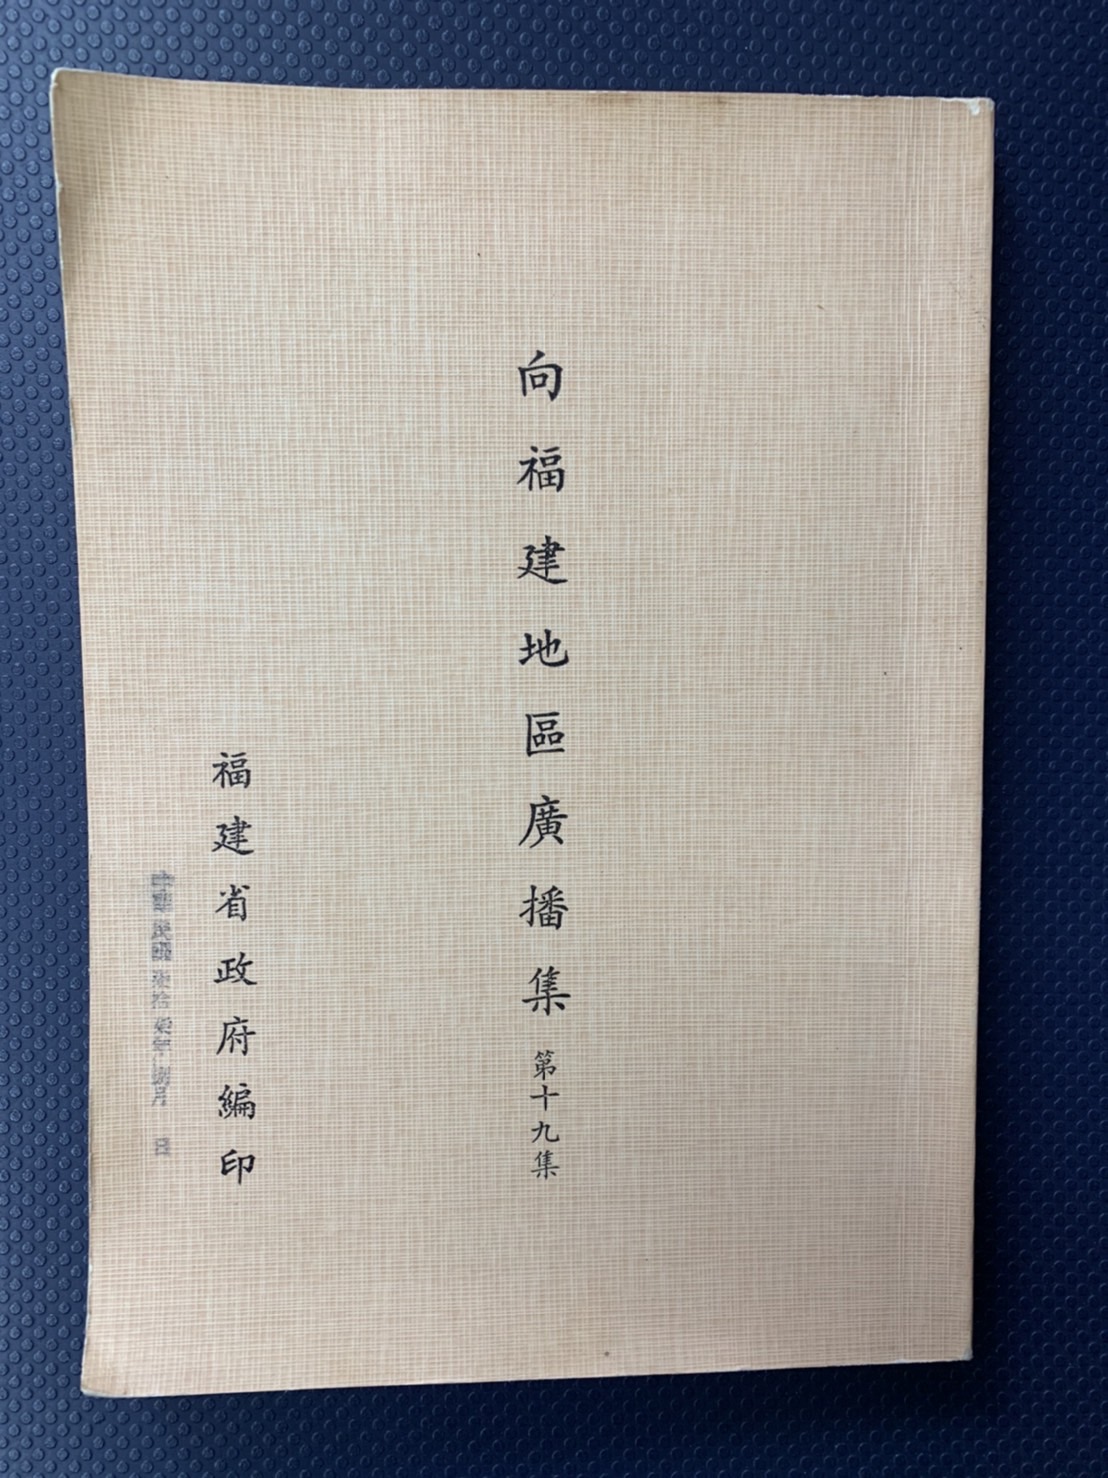 向福建地區廣播集 第十九集
福建省政府編印
中華民國柒拾柒年捌月 日